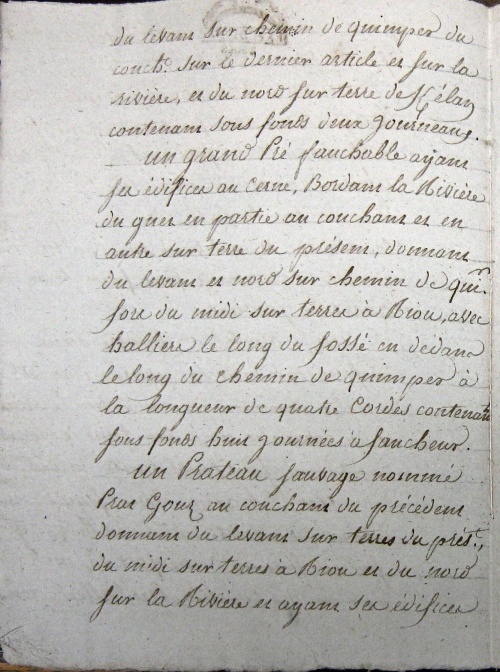 du levant sur chemin de quimper du
coucht. sur le dernier article et sur la
rivière, et du nord sur terre de Kélan
contenant sous fonds deux journeaux.
un grand Pré fauchable ayant
ses édifices au Cerne, Bordant la Rivière
du guer en partie au couchant et en
autre sur terre du présent, donnant
du levant et nord sur chemin de
fore du midi sur terres à Riou, avec
halliere le long du fossé en dedans
le long du chemin de quimper à
la longueur de quatre Cordes contenant
sous fonds huit journées à faucheur.
un Prateau sauvage nommé
Prat Gouz au couchant du précédent
donnant du levant sur terres du prést.,
du midi sur terres à Riou et du nord
sur la Rivière et ayant ses édifices